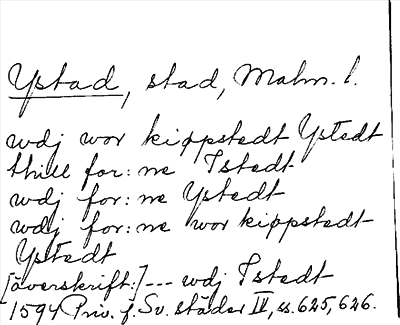 Ystad, stad, Malm. l.
wdj wor kippstedt Ystedt
thill for: ne Istedt
wdj for: ne Ystedt
wdj for: ne wor kippstedt
Ystedt
[överskrift:] --- wdj Istedt
1594 Priv. f. Sv. städer IV, ss. 625, 626.